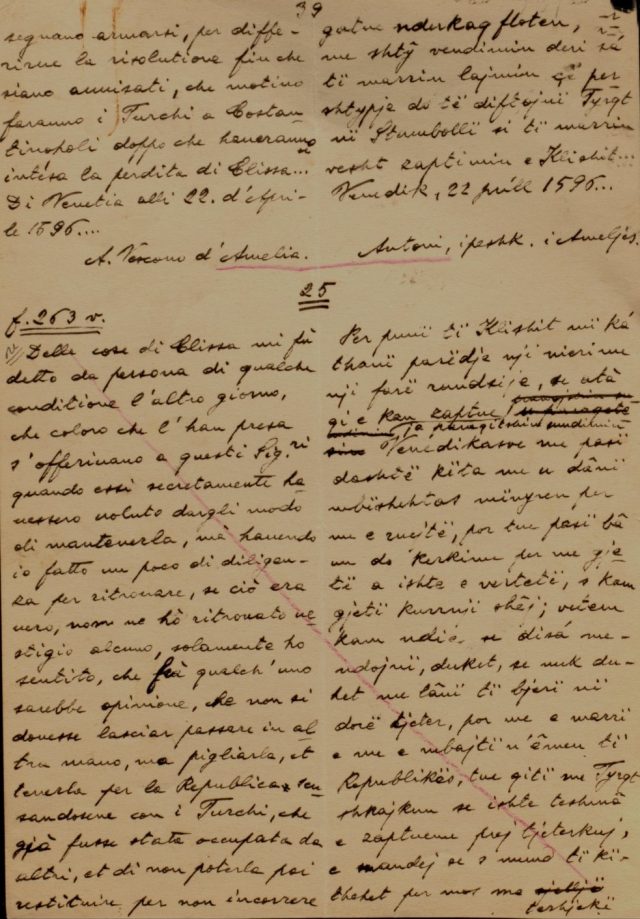 39
segnano armarsi, per diffe-
rirne la risolutione fin che
siano auuisati, che motiuo
faranno i Turchi a Costan-
tinopoli doppo che haueranno
intésa la pérdita di Clissa...
Di Venetia alli 22. d'Apri-
le 1596....
A. Véscouo d'Amelia.
nderkaq floten,
me shtŷ vendimin deri sá
tï marrin lajmin që për
shtypje do të diftojnï Tyrqt
në Stambollï si tï marrin
vesht zaptimin e Klishit...
Venedik, 22 prïll 1596...
Antoni, ipeshk. i Ameljés.
25
f. 263 v.
Delle cose di Clissa mi fù
detto da persona di qualche
conditione l'altro giorno,
che coloro che l'han presa
s'offeriuano a questi Sig.ri
quando essi secretamente ha
uessero uoluto dargli modo
di mantenerla, mà hauendo
io fatto un poco di diligen-
za per ritrouare, se ciò era
uero, non ne hò ritrouato ue
stigio alcuno, solamente ho
sentito, che frà qualch'uno
sarebbe opinione, che non si
douesse lasciar passare in al
tra mano, ma pigliarla, et
tenerla per la Republica, scu
sandosene con i Turchi, che
già fusse stata occupata da
altri, et di non poterla poi
restituire per non incorrere
Per punë tï Klishit mï ká
thanï parëdja njï nieri me
njï farë randsije, se atá
qi e kan zaptue,
Venedikasve me pasï
dashtë këta me u dânï
mbishehtas mënyren për
me e ruejtë, por tue pasï bâ
un do kërkime për me gje
të a ishte e vertetë, s'kam
gjetï kurrnjï shêj; vetem
kam ndie, se disá me-
ndojnï, duket, se nuk du-
het me lânï tï bjerï nï
dorë tjeter, por me e marrï
e me e mbajtï n'âmen tï
Republikës, tue qitï me Tyrqt
shkajkun se ishte teshmâ
e zaptueme prej tjeterkuj,
e mandej se s'mund tï kï-
thehet për mos me
terhjekë